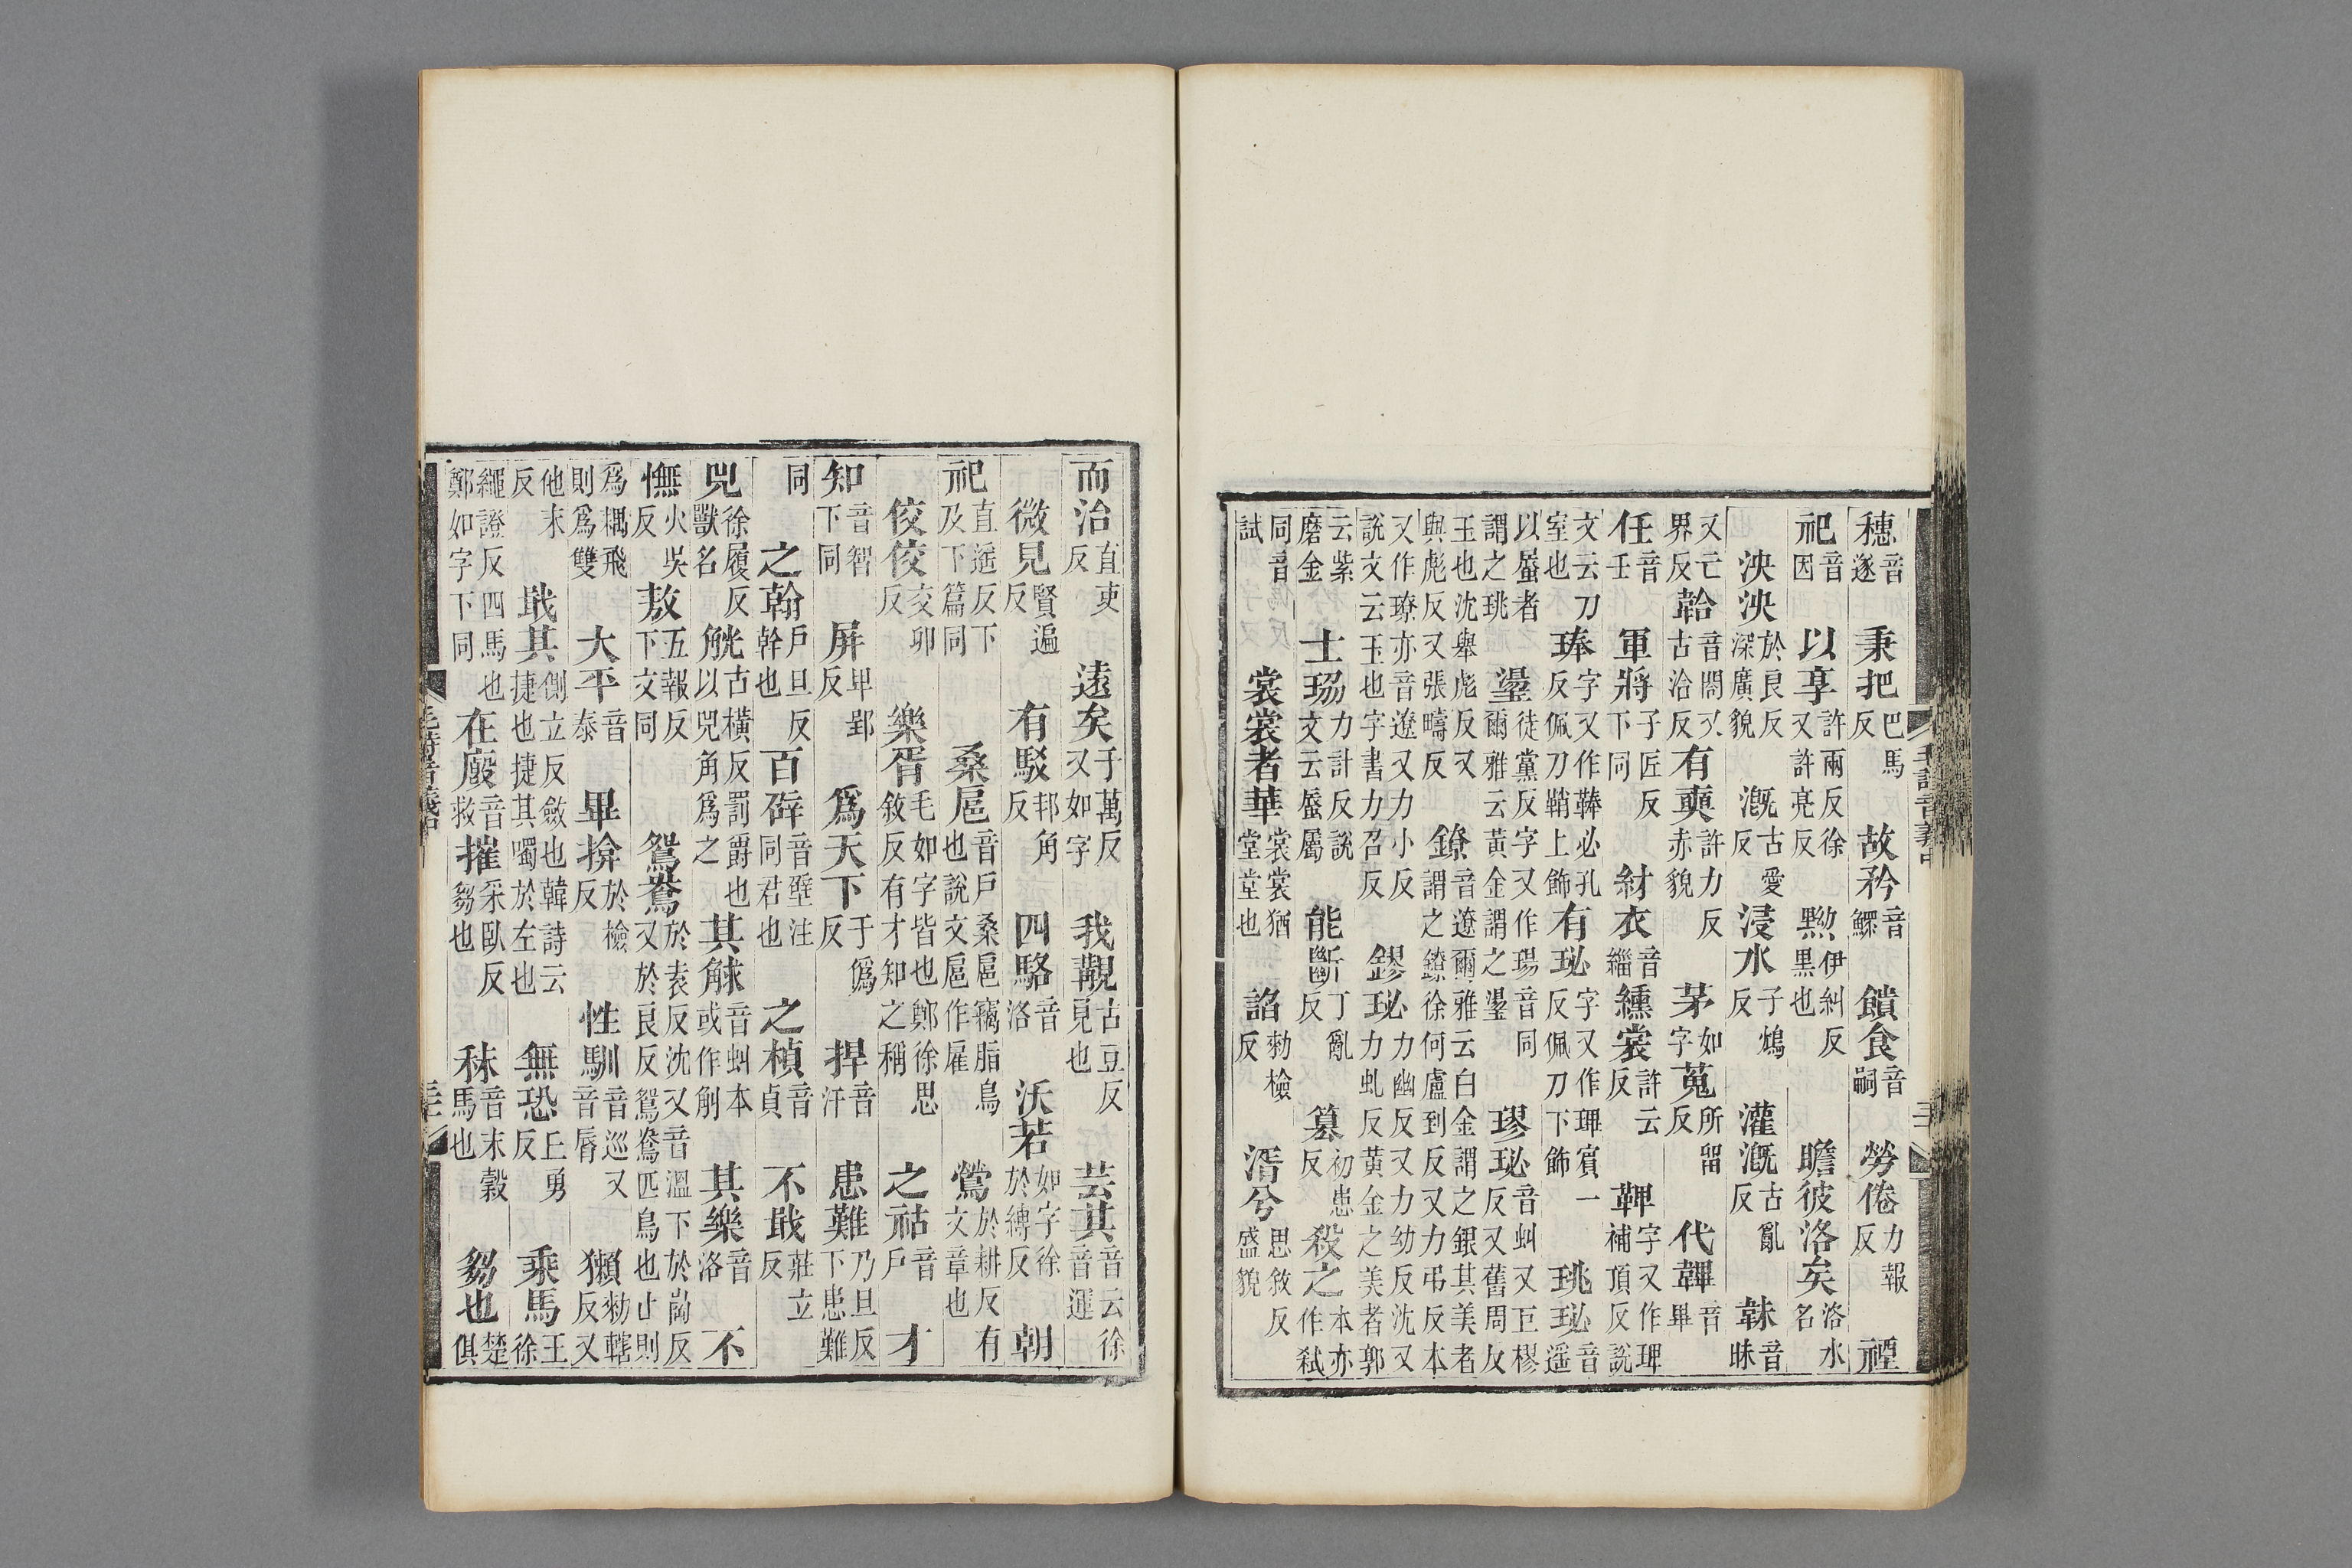 毛詩音義中
穗音遂 秉把巴馬反 故矜音鰥 饋食音嗣 勞倦力報反 禋
祀音因 以享許兩反徐又許亮反 黝伊糾反黒也 瞻彼洛矣洛水名
泱泱於良反深廣貌 溉古愛反 浸水子鴆反 灌溉古亂反 韎音昧
又亡界反 韐音閤又古洽反 有奭許力反赤貌 茅如字 蒐所留反 代韠音畢
任音壬 軍將子匠反下同 紂衣音緇 纁裳許云反 鞞字又作琕補頂反說
文云刀室也 琫字又作鞛必孔反佩刀鞘上飾 有珌字又作琕賓一反佩刀下飾 珧珌音遥
以蜃者謂之珧 璗徒黨反字又作瑒音同爾雅云黃金謂之璗 璆珌音虯又巨樛反又舊周友
玉也沈舉彪反又與彪反又張疇反 鐐音遼爾雅云白金謂之銀其美者謂之鐐徐何盧到反又力弔反本
又作璙亦音遼又力小反說文云玉也字書力召反 鏐珌力幽反又力幼反沈又力虬反黃金之美者郭
云紫磨金 士珕力計反說文云蜃屬 能斷丁亂反 篡初患反 殺之本亦作弒
同音試 裳裳者華裳裳猶堂堂也 諂勑檢反 湑兮思敘反盛貌
而治直吏反 遠矣于萬反又如字 我覯古豆反見也 芸其音云徐音運
微見賢遍反 有駁邦角反 四駱音洛 沃若如字徐於縛反 朝
祀直遥反下及下篇同 桑扈音戶桑扈竊脂鳥也說文扈作雇 鶯於耕反有文章也
佼佼交卯反 樂胥毛如字皆也鄭徐思敘反有才知之稱 之祜音戶 才
知音智下同 屏卑郢反 爲天下于僞反 捍音汗 患難乃旦反下患難
同 之翰戶旦反幹也 百辟音壁注同君也 之楨音貞 不戢莊立反
兕徐履反獸名 觥古橫反罰爵也以兕角爲之 其觩音虯本或作斛 其樂音洛 不
憮火吳反 敖五報反下文同 鴛鴦於袁反沈又音溫下於崗反又於良反鴛鴦匹鳥也止則
爲耦飛則爲雙 大平音泰 畢揜於檢反 性馴音巡又音脣 獺勑轄反又
他末反 戢其側立反斂也韓詩云捷也捷其噣於左也 無恐丘勇反 乘馬王徐
繩證反四馬也鄭如字下同 在廄音救 摧采臥反芻也 秣音末穀馬也 芻也楚俱
毛詩音義中